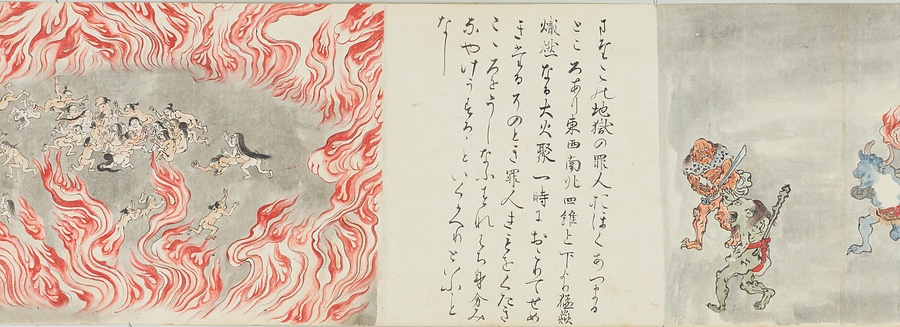 まえこの地獄の罪人たはくあつまる
ところあり東西南北四維上下より猛𦦨
熾燃なる大火聚一時におこりてせめ
きたるそのとき罪人きもをくたき
こころをうしなふをれらち身分み
なやけうするといくくめといふと
なし